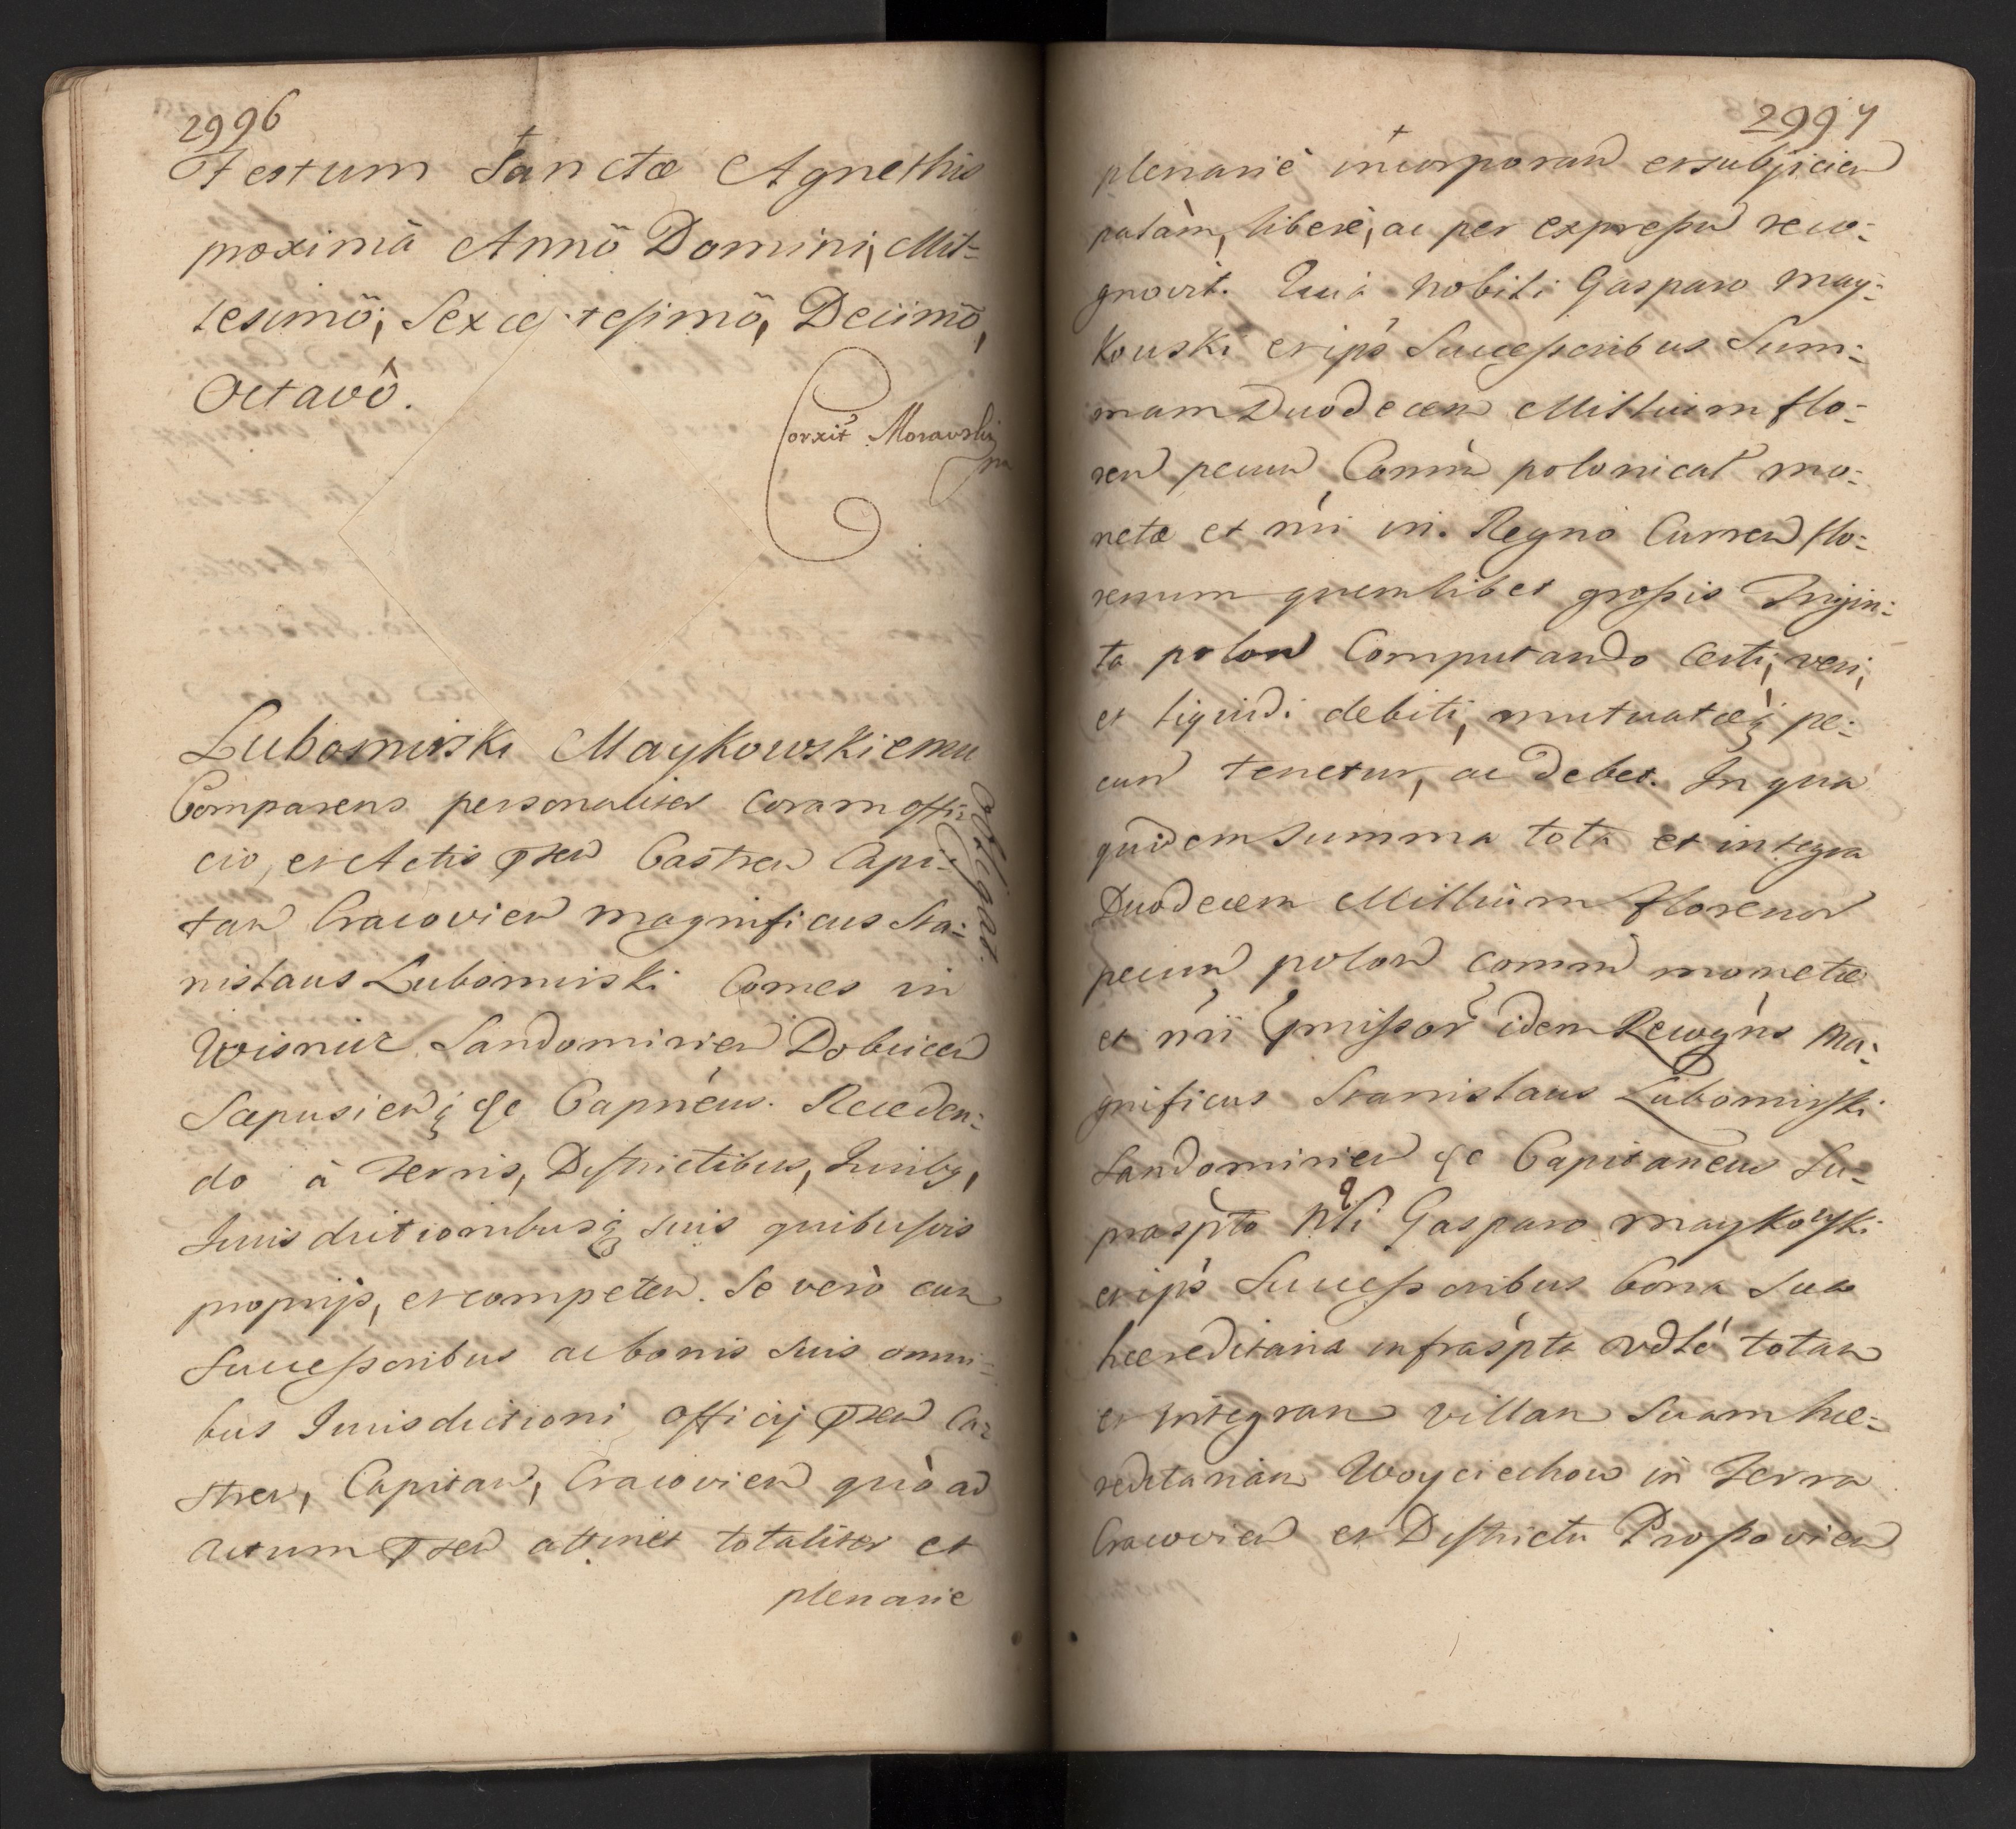 2996
Festum Sanctæ Agnethis
proximâ Annô Domini, Mil-
lesimô, Sexcentesimô, Decimô,
Octavô.
Corxit Moravski
mp
Lubomirski Maykowskiemu
obligat.
Comparens personaliter coram offi-
cio, et Actis pnten Castren Capi-
tan Cracovien magnificus Sta-
nislaus Lubomirski Comes in
Wisnicz Sandomirien Dobricen
Scepusienq; &c Capnéus. Receden-
do à Terris, Districtibus, Juribq,
Jurisdictionibusq; suis quibusvis
proprijs, et competen. Se verò cum
Successoribus ac bonis suis omni-
bus Jurisdictioni officij pnten Ca-
stren, Capitan, Cracovien quò ad
actum pnten attinet totaliter et
plenarie
2997
plenariè incorporan et subjicien
palàm, liberè, ac per expressu reco-
gnovit. Quia Nobili Gasparo May-
kowski et ips Successoribus Sum-
mam Duodecem Millium flo-
ren pecun Comm polonical mo-
netæ et nri in Regno Curren flo-
renum quemlibet grossis Trigin-
ta polon Computando certi, veri,
et liquidi debiti, mutuatæq; pe-
cun tenetur, ac debet. In qua
quidem summa tota et integra
Duodecem Millium florenor
pecun polon comm monetæ
et nri pmissor idem Recogns Ma-
gnificus Stanislaus Lubomirski
Sandomirien &c Capitaneus Su-
praspto Nbli Gasparo Maykowski
et ips Successoribus bona sua
hæreditaria infraspta vdlt totam
et integram villam Suam hæ-
reditariam Woyciechow in Terra
Cracovien et Districtu Prossovien